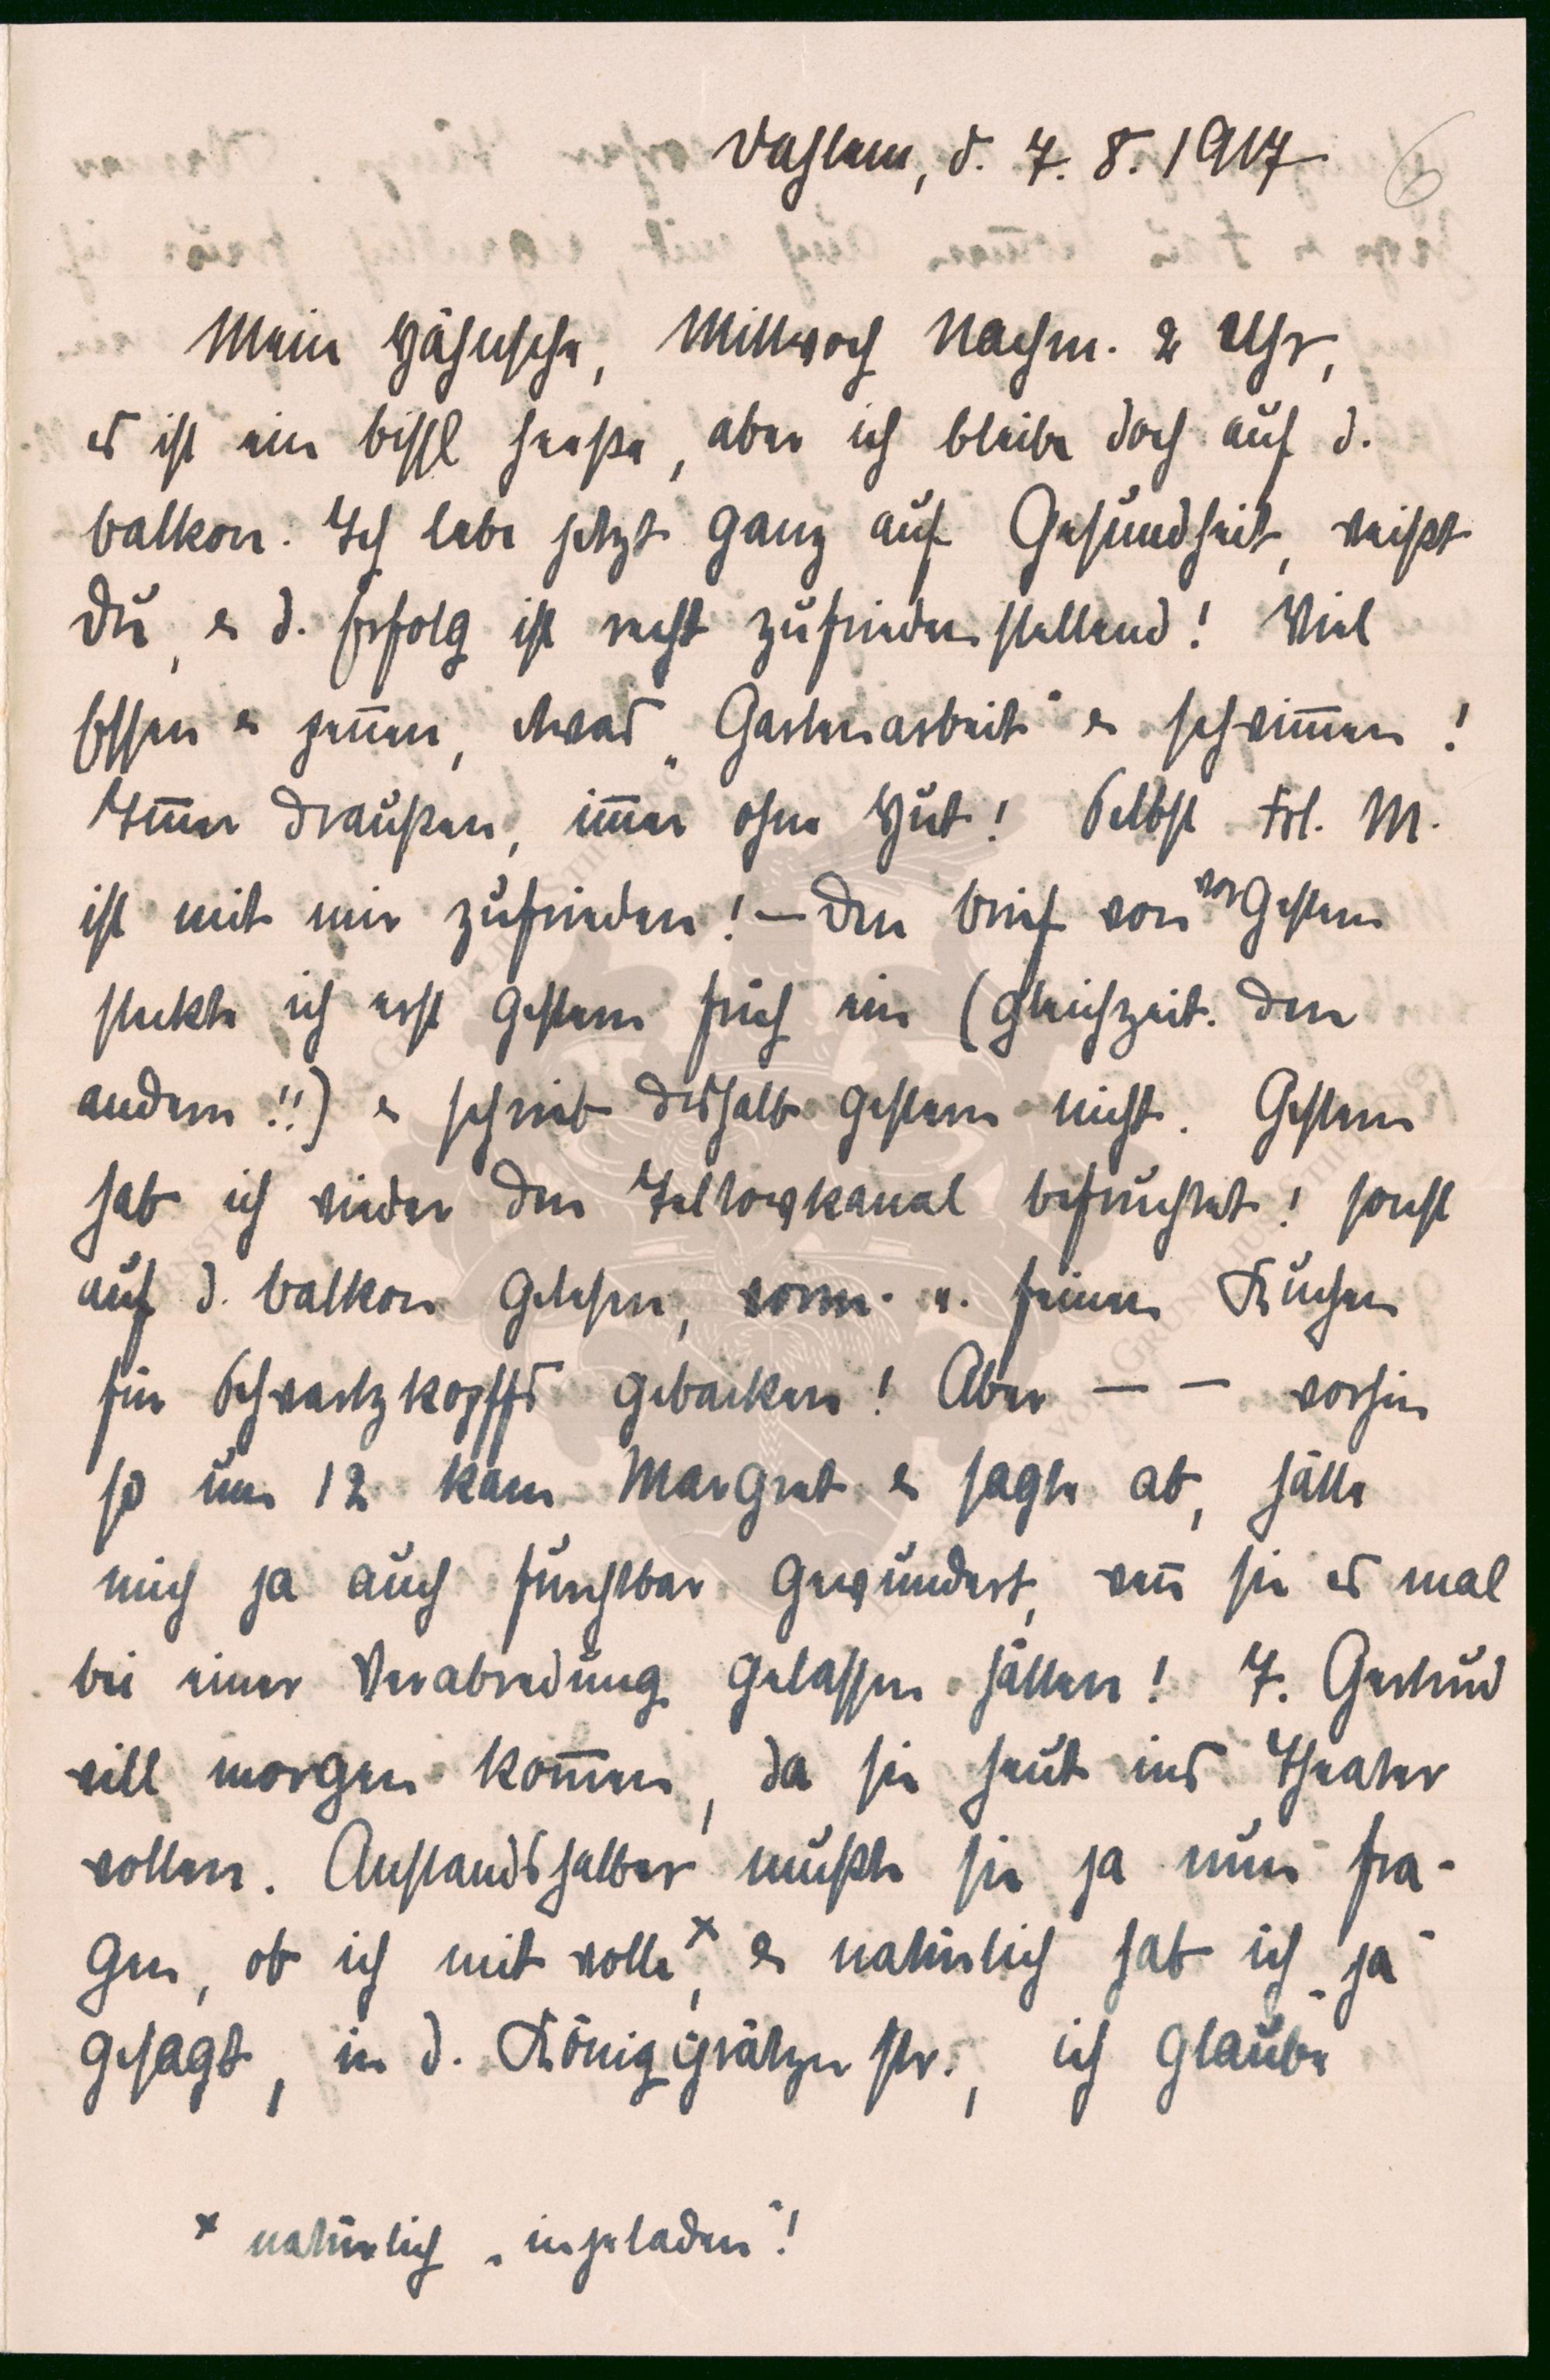 Dahlem, d. 7. 8. 1917
6
Mein Hähnsche, Mittwoch Nachm. 2 Uhr,
es ist ein bissl heeße, aber ich bleibe doch auf d.
Balkon. Ich lebe jetzt ganz auf Gesundheit, weißt
Du, & d. Erfolg ist recht zufriedenstellend! Viel
Essen & pennen, etwas „Gartenarbeit“ & schwim̅en!
Im̅er draußen, im̅er ohne Hut! Selbst Frl. M.
ist mit mir zufrieden! – Den Brief von vorgestern
steckte ich erst gestern früh ein (gleichzeit. den
andern!!) & schrieb deshalb gestern nicht. Gestern
hab ich wieder den Teltowkanal befruchtet! sonst
auf d. Balkon gelesen, vorm. u. feinen Kuchen
für Schwartzkopffs gebacken! Aber – – vorhin
so um 12 kam Margret & sagte ab, hätte
mich ja auch furchtbar gewundert, wen̅ sie es mal
bei einer Verabredung gelassen hätten! T. Gertrud
will morgen kom̅en, da sie heut ins Theater
wollen. Anstandshalber mußte sie ja nun fra-
gen, ob ich mit wolle ˣ, & natürlich hab ich „ja“
gesagt, in d. Königgrätzer str., ich glaube
ˣ natürlich „injeladen“!